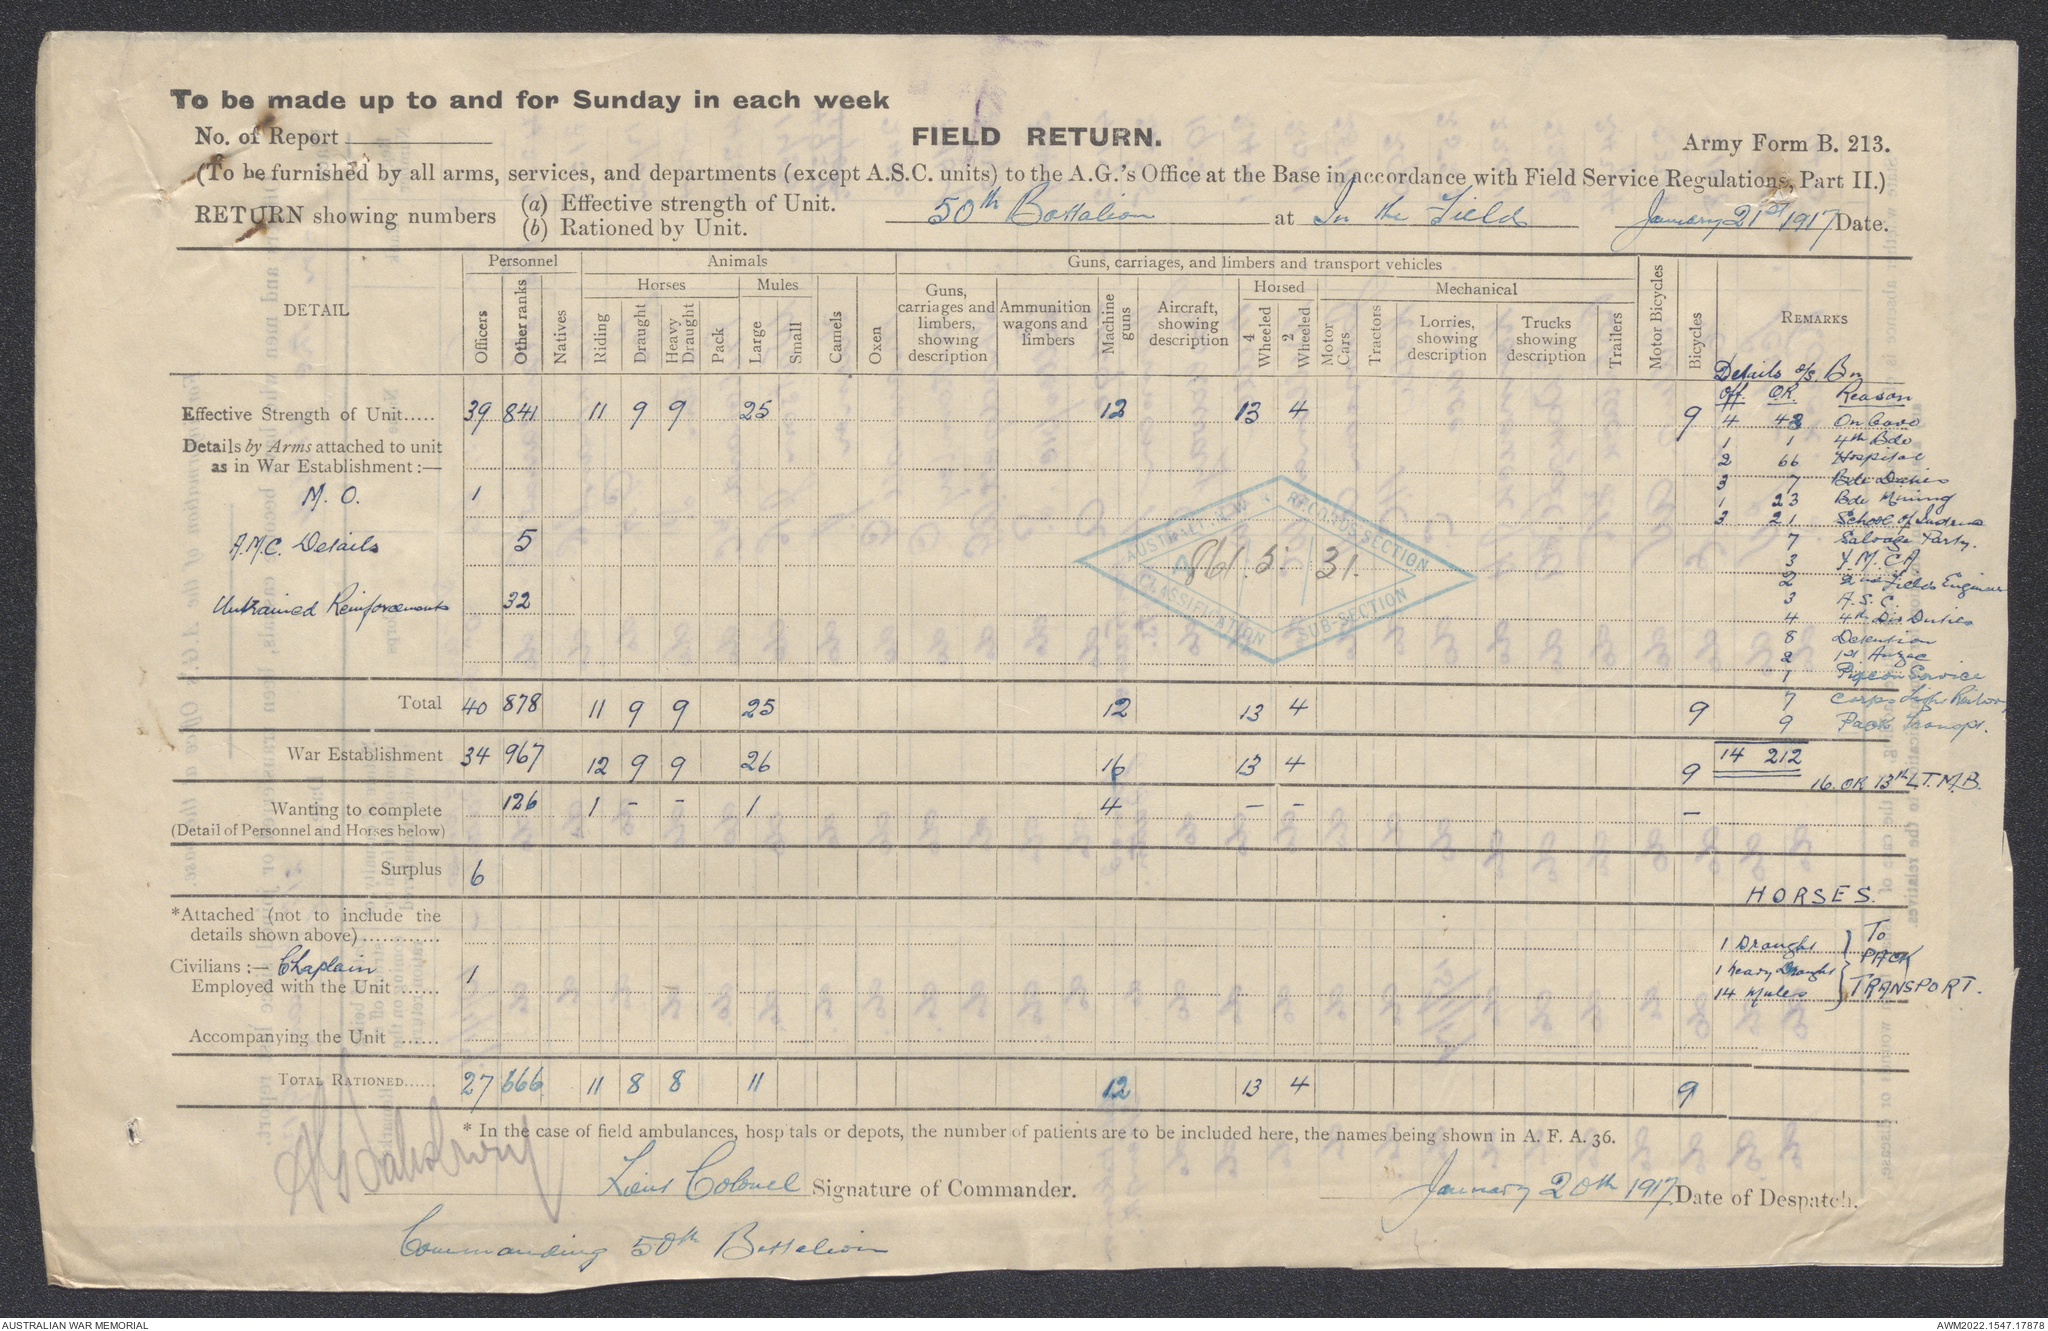 To be made up to and for Sunday in each week
No. of Report
FIELD RETURN.
Army Form B. 213.
(To be furnished by all arms, services, and departments (except A.S.C. units) to the A.G.'s Office at the Base in accordance with Field Service Regulations, Part II.)
RETURN showing numbers
(a) Effective strength of Unit.
(b) Rationed by Unit.
50th Battalion at In the Field January 21st 1917 Date.
DETAIL
Personnel
Animals
Guns, carriages, and limbers and transport vehicles
Horses
Mules
Horsed
Mechanical
Officers
Other ranks
Natives
Riding
Draught
Heavy Draught
Pack
Large
Small
Camels
Oxen
Guns, carriages and limbers, showing description
Ammunition wagons and limbers
Machine guns
Aircraft, showing description
4 Wheeled
2 Wheeled
Motor Cars
Tractors
Lorries, showing description
Trucks showing description
Trailers
Motor Bicycles
Bicycles
REMARKS
Details o/s Bn
Off. OR. Reason
Effective Strength of Unit..... 39 841 11 9 9 25 12 13 4 9
4 On
1 1 4th Bde
2 66 Hospital
3 7 Bde Duties
1 23 Bde Mining
3 21 School of
7 Salvage Party.
3 Y.M.C.A
2 2nd Field Engineer
3 A.S.C.
4 4th Div Duties
8 Detention
2 1st Anzac
1 Pigeon Service
7 Corps Light Railway
9 Pack Transpt.
14 212
16 OR 13th L.T.M.B.
Details by Arms attached to unit
as in War Establishment :—
M. O. 1
A.M.C. Details 5
Untrained Reinforcements 32
AUSTRALIAN WAR RECORDS SECTION
CLASSIFICATION SUB-SECTION
861.5. 31.
Total 40 878 11 9 9 25 12 13 4 9
War Establishment 34 967 12 9 9 26 16 13 4 9
Wanting to complete 126 1 – – 1 4 – – –
(Detail of Personnel and Horses below)
Surplus 6
HORSES.
*Attached (not to include the
details shown above)............
1 Draught
1 Heavy Draught
14 Mules
TO
PACK
TRANSPORT.
Civilians :— Chaplain
Employed with the Unit ...... 1
Accompanying the Unit ......
TOTAL RATIONED...... 27 666 11 8 8 11 12 13 4 9
* In the case of field ambulances, hospitals or depots, the number of patients are to be included here, the names being shown in A. F. A. 36.
Lieut Colonel Signature of Commander.
January 20th 1917 Date of Despatch.
Commanding 50th Battalion
AUSTRALIAN WAR MEMORIAL
AWM2022.1547.17878